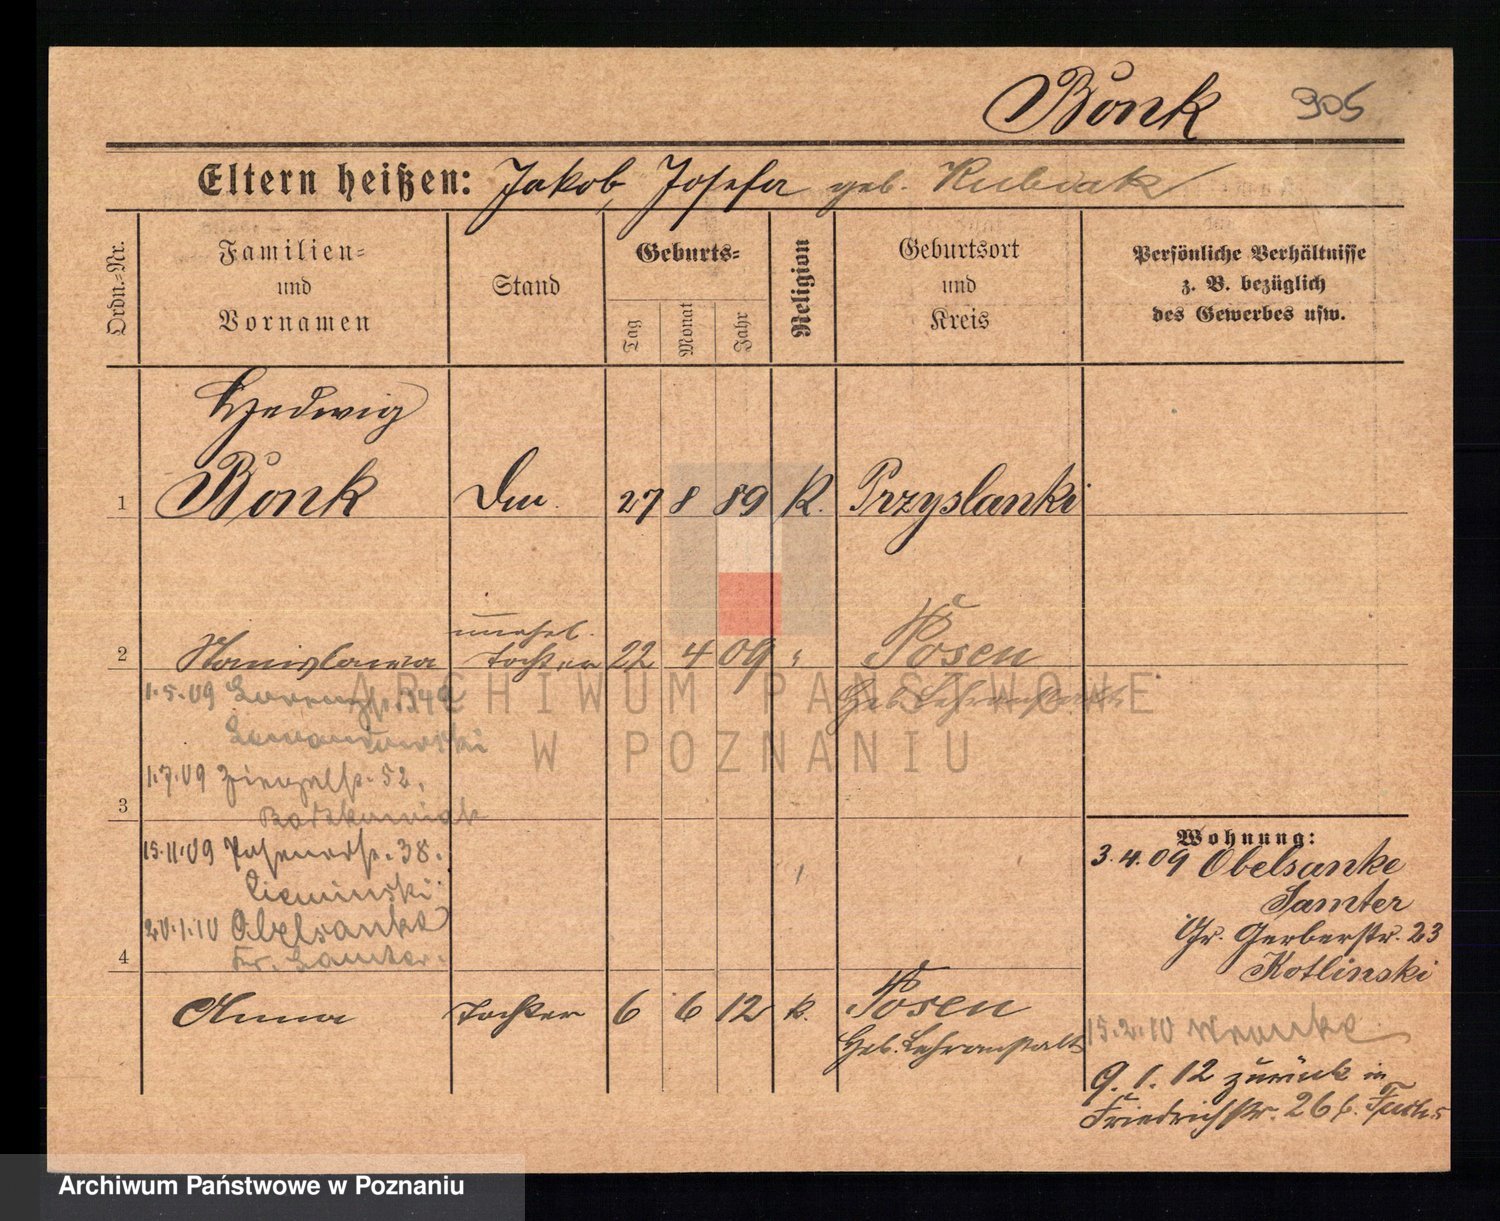 Bonk 305
Eltern heißen: Jakob, Josefa geb. Kubiak
Ordn.-Nr.
Familien-
und
Vornamen
Stand
Geburts-
Tag
Monat
Jahr
Religion
Geburtsort
und
Kreis
Persönliche Verhältnisse
z. B. bezüglich
des Gewerbes usw.
Hedwig
1 Bonk 27 8 89 K. Przyslanki
unehel.
2 Stanislawa Tochter 22 4 09 " Posen
Geb. Lehranstalt
1.5.09 34
Lewandowski
1.7.09 Ziegelstr. 52.
3
15.11.09 Posenerstr. 38.
Cieminski
20.1.10 Obelsanke
Kr. Samter.
4
Anna Tochter 6 6 12 k. Posen
Geb. Lehranstalt
Wohnung:
3.4.09 Obelsanke
Samter
Gr. Gerberstr. 23
Kotlinski
15.2.10 Wronke
9.1.12 zurück in
Friedrichstr. 26 b. Fuchs
ARCHIWUM PAŃSTWOWE
W POZNANIU
Archiwum Państwowe w Poznaniu